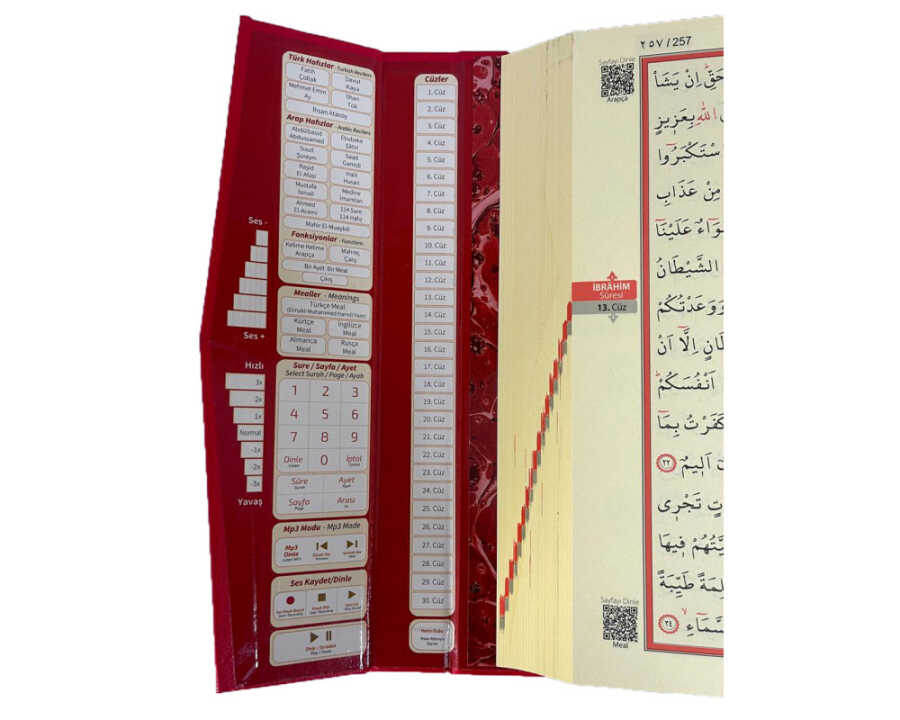 Türk Hafızlar - Turkish Reciters
Fatih Çollak
Davut Kaya
Mehmet Emin Ay
İlhan Tok
İhsan Atasoy
Arap Hafızlar - Arabic Reciters
Abdülbasıt Abdussamed
Ebubekir Şatıri
Suud Şureym
Saad Gamidi
Reşid El Afasi
Halil Husari
Mustafa İsmail
Medine İmamları
Ahmed El Acemi
114 Sure 114 Hafız
Mahir El-Muaykili
Fonksiyonlar - Functions
Kelime Kelime Arapça
Mahreç Çalış
Bir Ayet, Bir Meal
Çıkış
Mealler - Meanings
Türkçe Meal
(Elmalılı Muhammed Hamdi Yazır)
Kürtçe Meal
İngilizce Meal
Almanca Meal
Rusça Meal
Sure / Sayfa / Ayet
Select Surah / Page / Ayah
1 2 3
4 5 6
7 8 9
Dinle 0 İptal
Sûre Ayet
Sayfa Arası
Mp3 Modu - Mp3 Mode
Mp3 Dinle
Ses Kaydet/Dinle
Ses -
Ses +
Hızlı
3x
2x
1x
Normal
-1x
-2x
-3x
Yavaş
Cüzler
1. Cüz
2. Cüz
3. Cüz
4. Cüz
5. Cüz
6. Cüz
7. Cüz
8. Cüz
9. Cüz
10. Cüz
11. Cüz
12. Cüz
13. Cüz
14. Cüz
15. Cüz
16. Cüz
17. Cüz
18. Cüz
19. Cüz
20. Cüz
21. Cüz
22. Cüz
23. Cüz
24. Cüz
25. Cüz
26. Cüz
27. Cüz
28. Cüz
29. Cüz
30. Cüz
Hatim Duası
İBRÂHİM
Sûresi
13. Cüz
٢٥٧ / 257
Sayfayı Dinle
Arapça
حَقِّ اِنْ يَشَأْ
اللّٰهِ بِعَزِيزٍ
اسْتَكْبَرُوا
مِنْ عَذَابِ
سَوَاءٌ عَلَيْنَا
الشَّيْطَانُ
وَوَعَدْتُكُمْ
اِلَّا اَنْ
اَنْفُسَكُمْ
كَفَرْتُ بِمَا
اَلِيمٌ ٢٢
تَجْرِى
فِيهَا
طَيِّبَةً
٢٤
Sayfayı Dinle
Meal